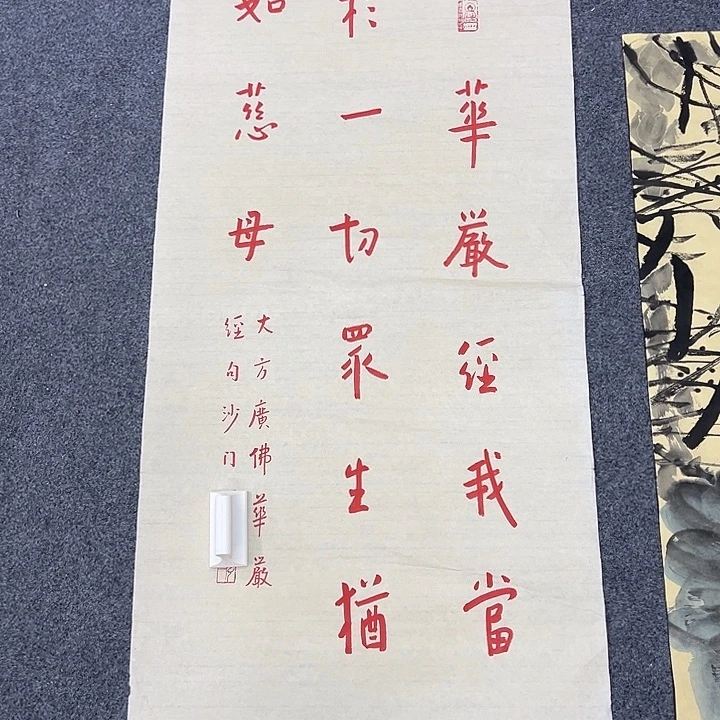 華嚴經我當
於一切眾生猶
如慈母
大方廣佛華嚴
經句沙门